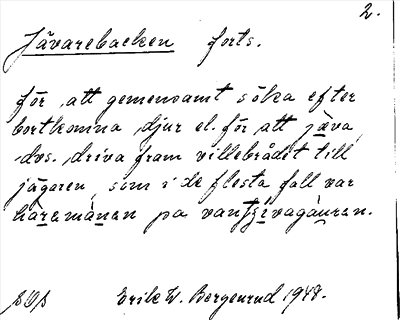 2.
Jävarebacken forts.
för att gemensamt söka efter
bortkomna djur el. för att jäva,
dvs. driva fram villebrådet till
jägaren, som i de flesta fall var
på
Erik W. Bergenrud 1948.